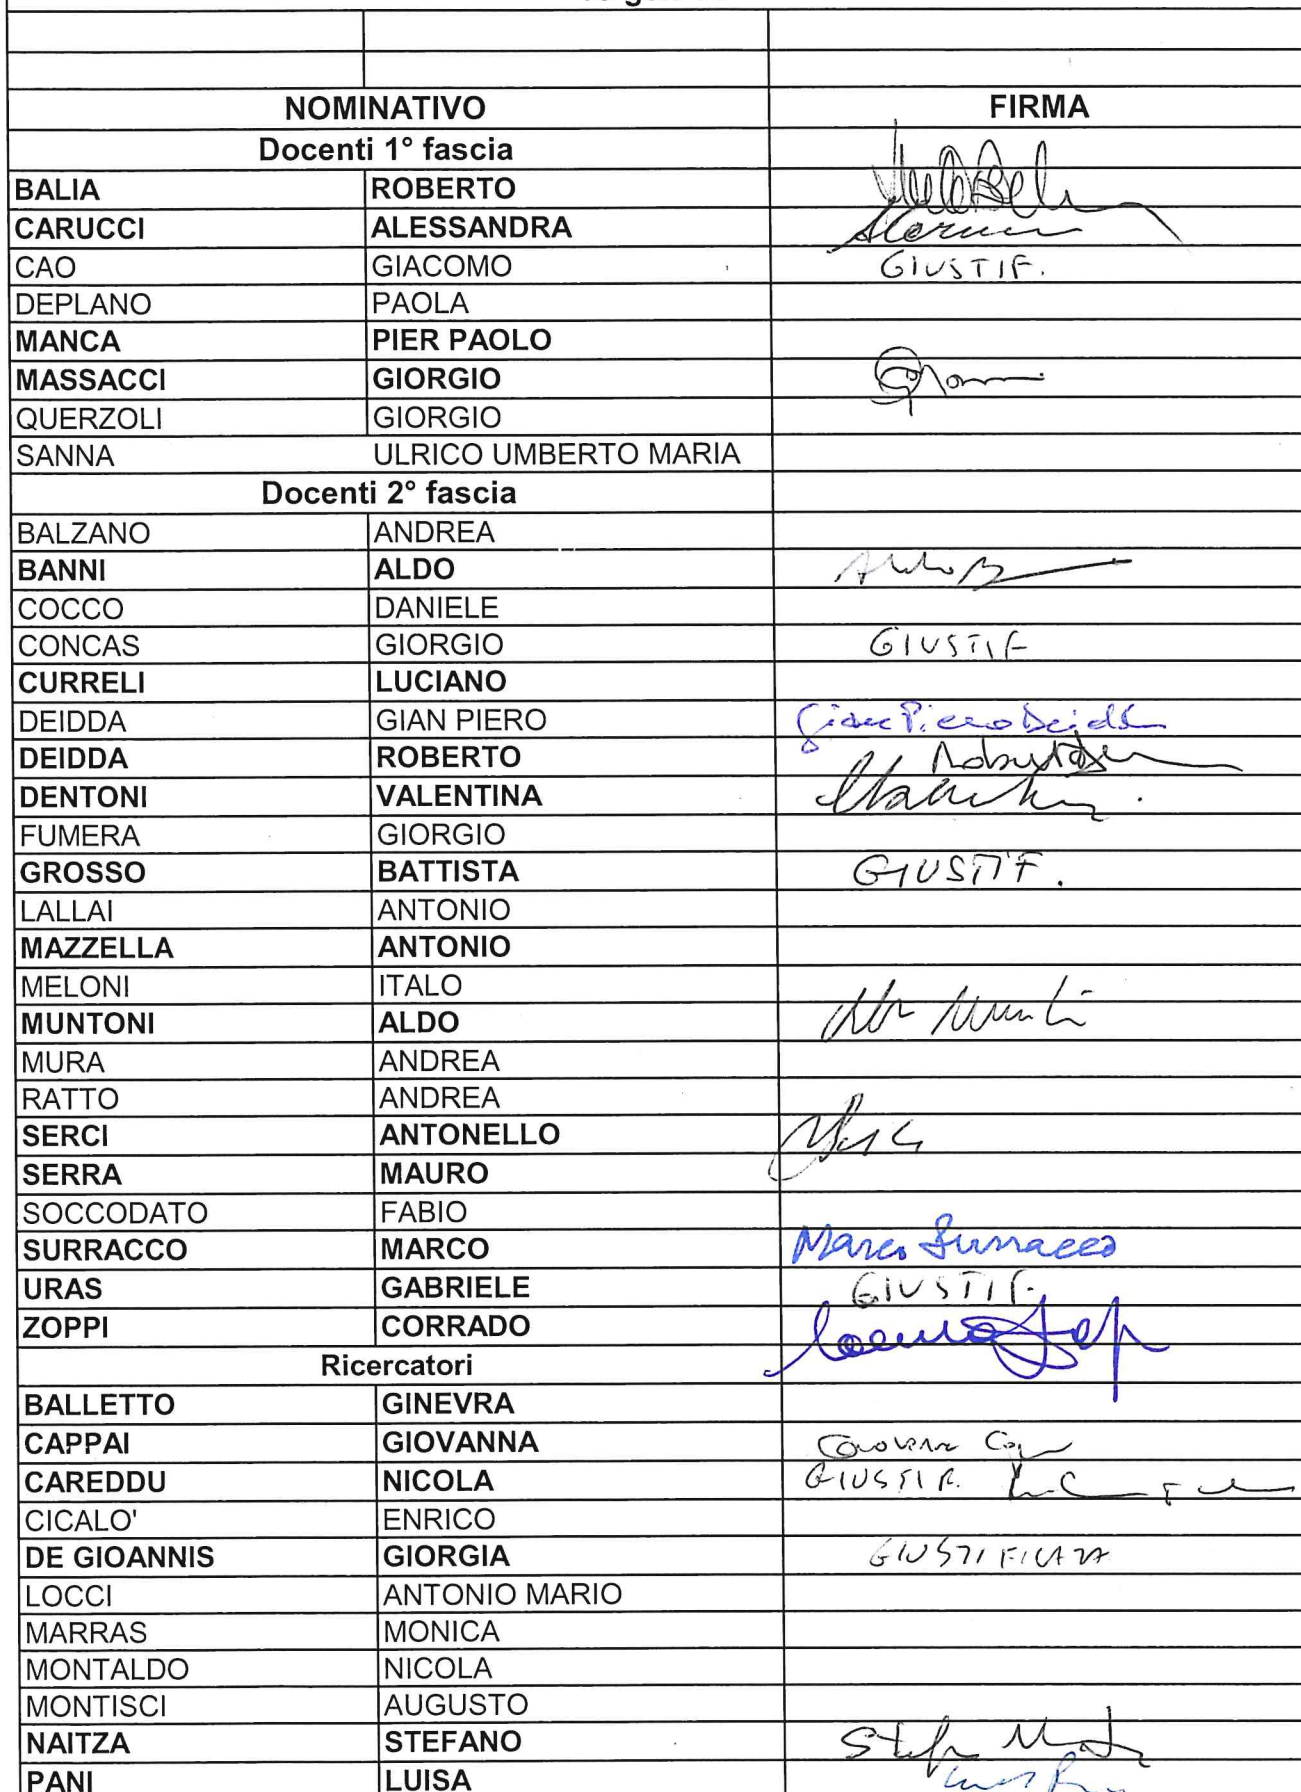 NOMINATIVO FIRMA
Docenti 1° fascia
BALIA ROBERTO
CARUCCI ALESSANDRA
CAO GIACOMO GIUSTIF.
DEPLANO PAOLA
MANCA PIER PAOLO
MASSACCI GIORGIO
QUERZOLI GIORGIO
SANNA ULRICO UMBERTO MARIA
Docenti 2° fascia
BALZANO ANDREA
BANNI ALDO
COCCO DANIELE
CONCAS GIORGIO GIUSTIF
CURRELI LUCIANO
DEIDDA GIAN PIERO Gian Piero Deidda
DEIDDA ROBERTO
DENTONI VALENTINA
FUMERA GIORGIO
GROSSO BATTISTA GIUSTIF.
LALLAI ANTONIO
MAZZELLA ANTONIO
MELONI ITALO
MUNTONI ALDO
MURA ANDREA
RATTO ANDREA
SERCI ANTONELLO
SERRA MAURO
SOCCODATO FABIO
SURRACCO MARCO Marco Surracco
URAS GABRIELE GIUSTIF.
ZOPPI CORRADO
Ricercatori
BALLETTO GINEVRA
CAPPAI GIOVANNA
CAREDDU NICOLA GIUSTIF.
CICALO' ENRICO
DE GIOANNIS GIORGIA GIUSTIFICATA
LOCCI ANTONIO MARIO
MARRAS MONICA
MONTALDO NICOLA
MONTISCI AUGUSTO
NAITZA STEFANO
PANI LUISA